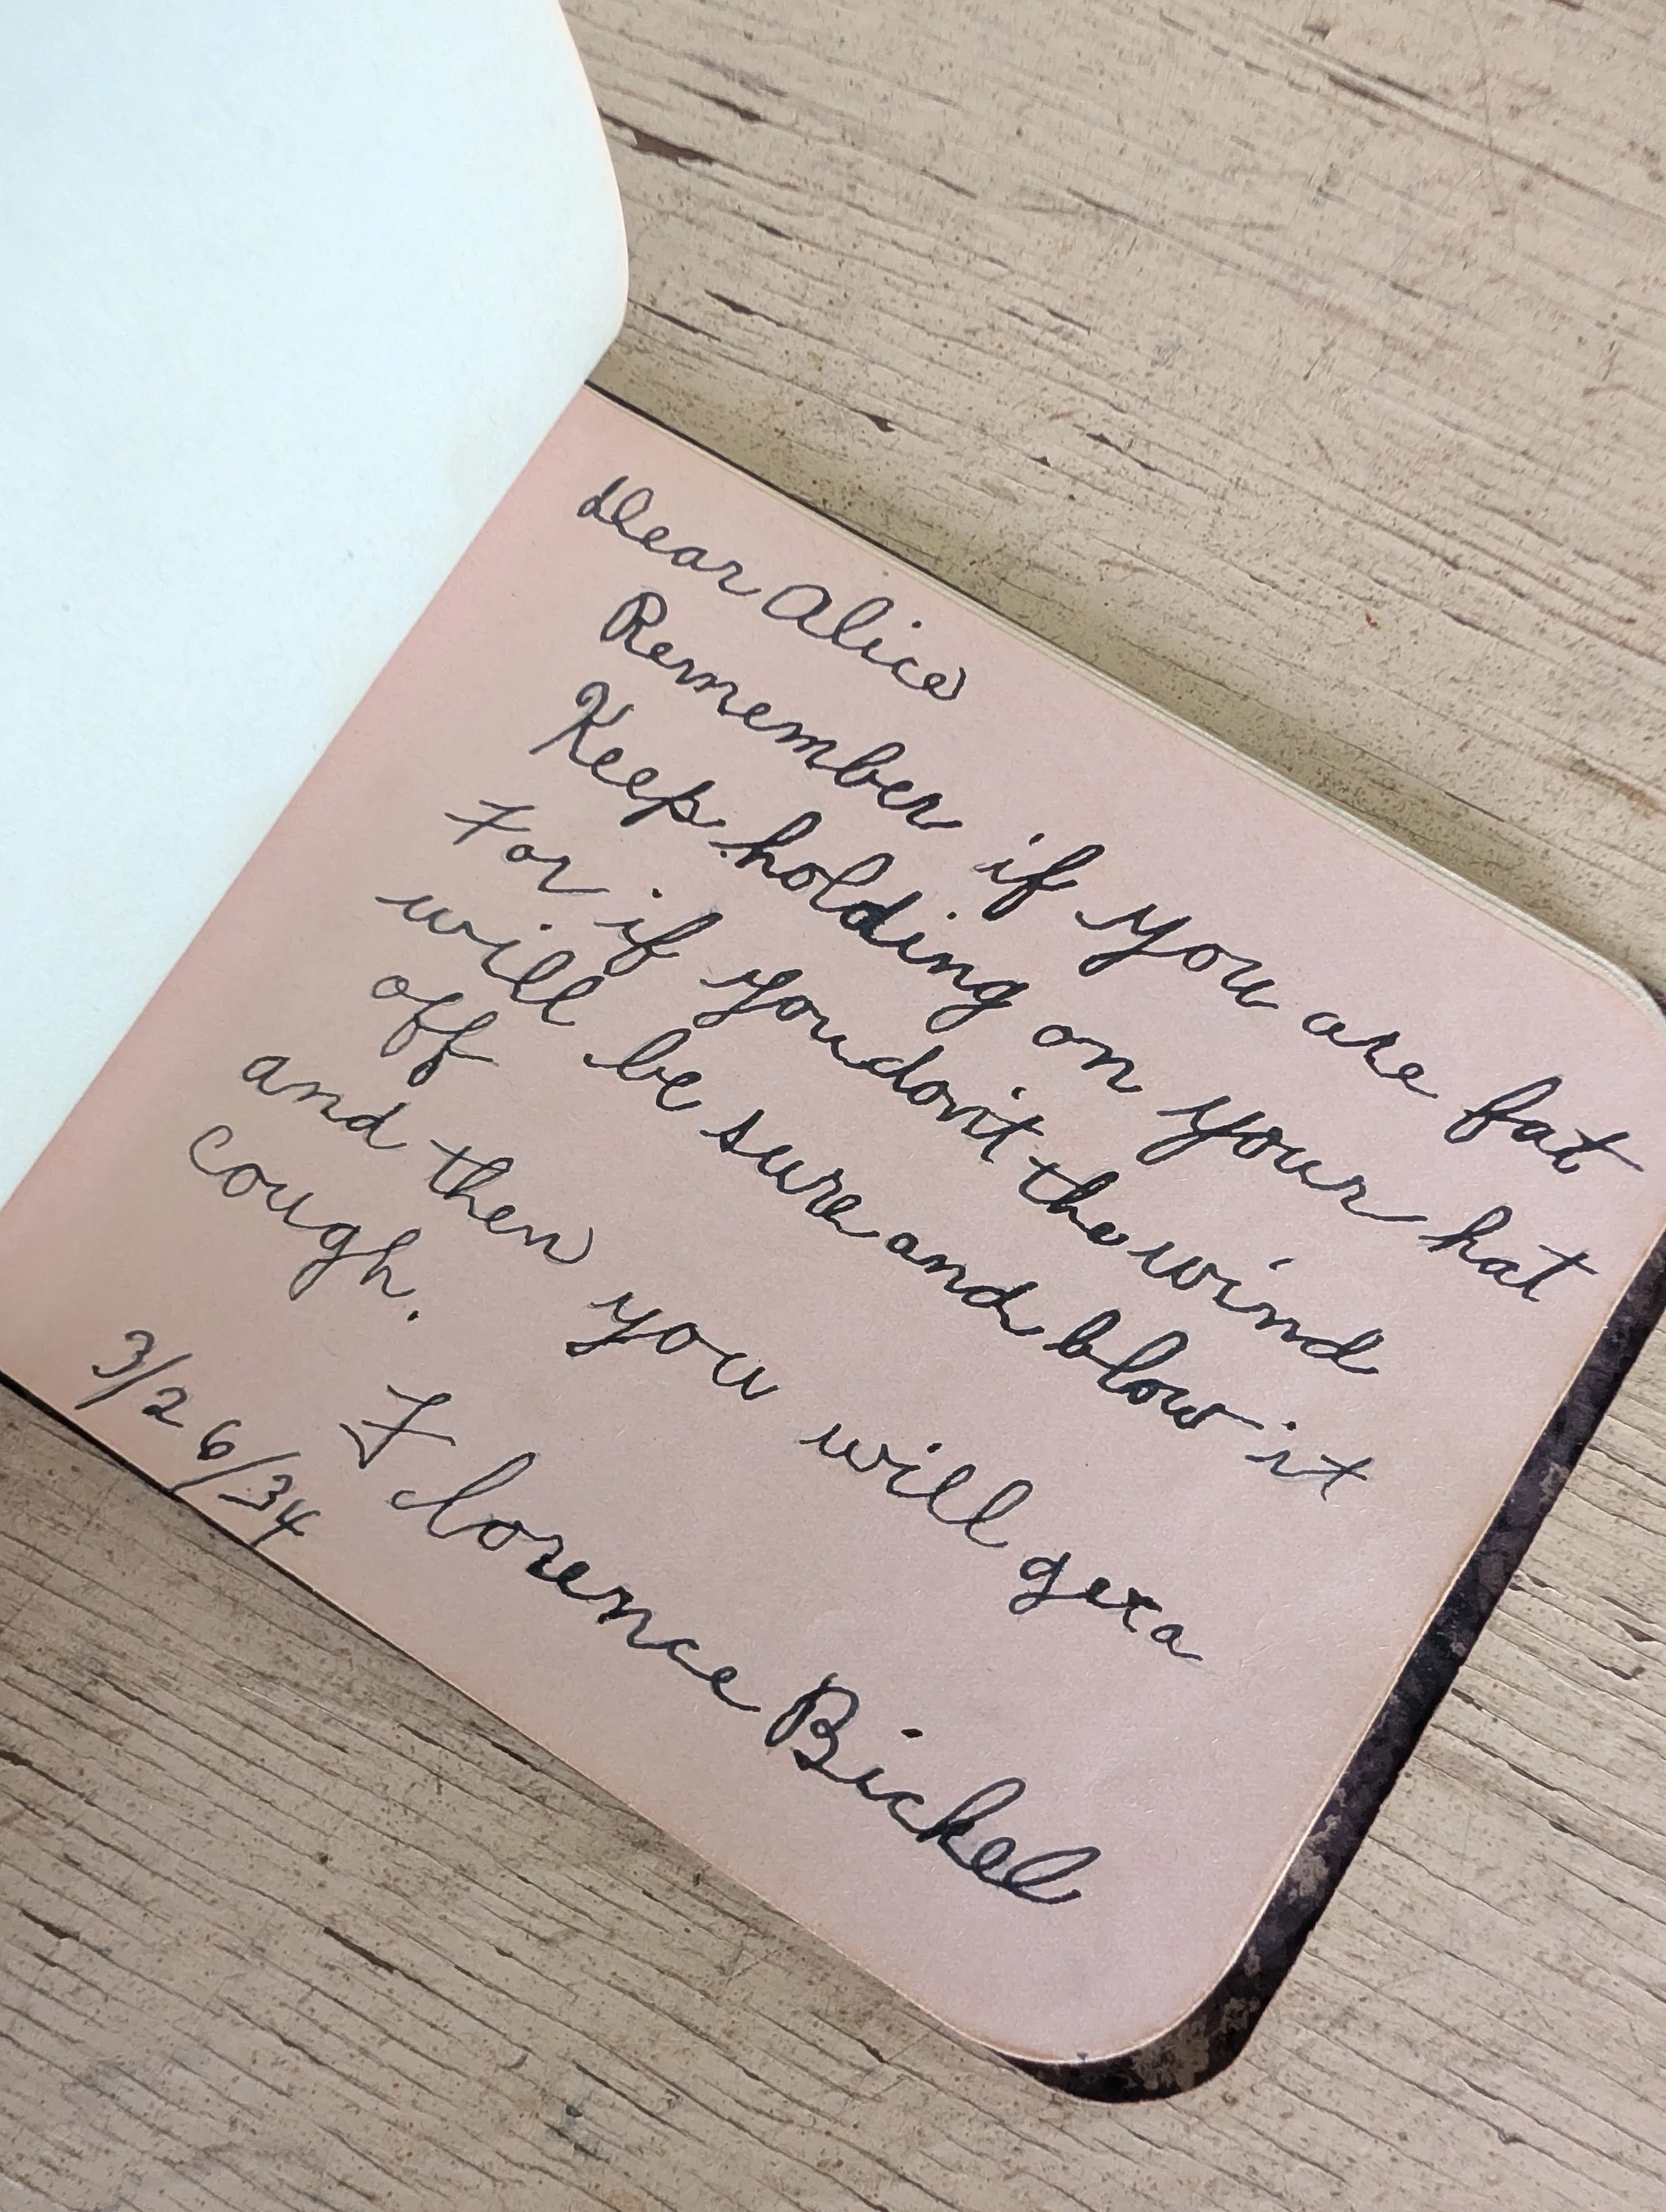 Dear Alice
Remember if you are fat
Keep holding on your hat
For if you don't the wind
will be sure and blow it
off
and then you will get a
cough.
Florence Bickel
3/26/34